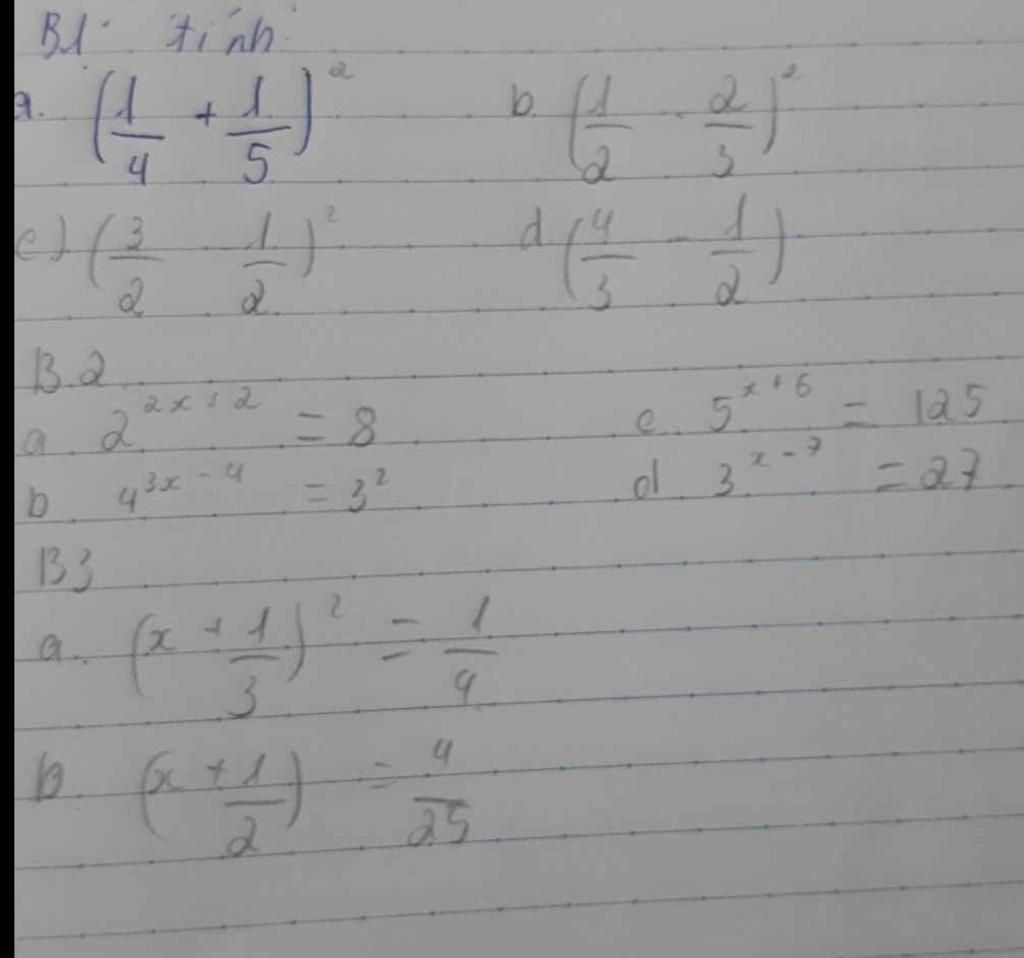 B1: tính
a. (1/4 + 1/5)² b. (1/2 - 2/3)²
c) (3/2 - 1/2)² d. (4/3 - 1/2)
B.2
a 2^{2x+2} = 8 c. 5^{x+6} = 125
b 4^{3x-4} = 3² d 3^{x-7} = 27
B3
a. (x + 1/3)² = 1/4
b. (x + 1/2) = 4/25